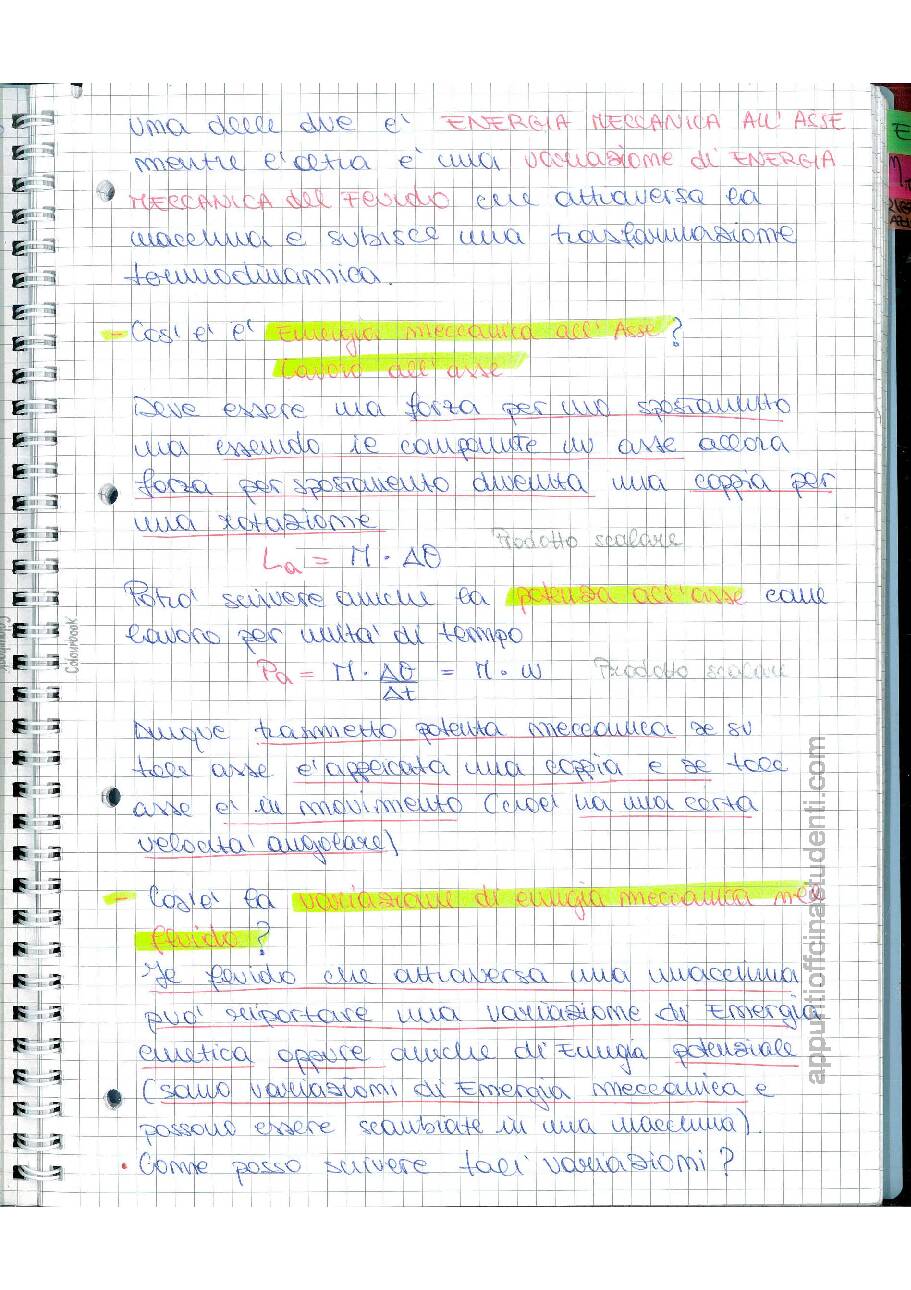 una delle due e' ENERGIA MECCANICA ALL'ASSE
mentre l'altra e' una variazione di ENERGIA
MECCANICA del FLUIDO che attraversa la
macchina e subisce una trasformazione
termodinamica.
- Cos'e' l' Energia meccanica all'Asse?
Lavoro all'asse
Deve essere una forza per uno spostamento
ma essendo le componenti in asse allora
forza per spostamento diventa una coppia per
una rotazione
La = M · Δθ Prodotto scalare
Potro' scrivere anche la potenza all'asse come
lavoro per unita' di tempo
Pa = M · Δθ/Δt = M · ω Prodotto scalare
Dunque trasmetto potenza meccanica se su
tale asse e' applicata una coppia e se tale
asse e' in movimento (cioe' ha una certa
velocita' angolare)
- Cos'e' la variazione di energia meccanica nel
fluido?
Il fluido che attraversa una macchina
puo' riportare una variazione di Energia
cinetica oppure anche di Energia potenziale
(sono variazioni di Energia meccanica e
possono essere scambiate in una macchina).
• Come posso scrivere tali variazioni?
Colourbook
appuntiofficinastudenti.com